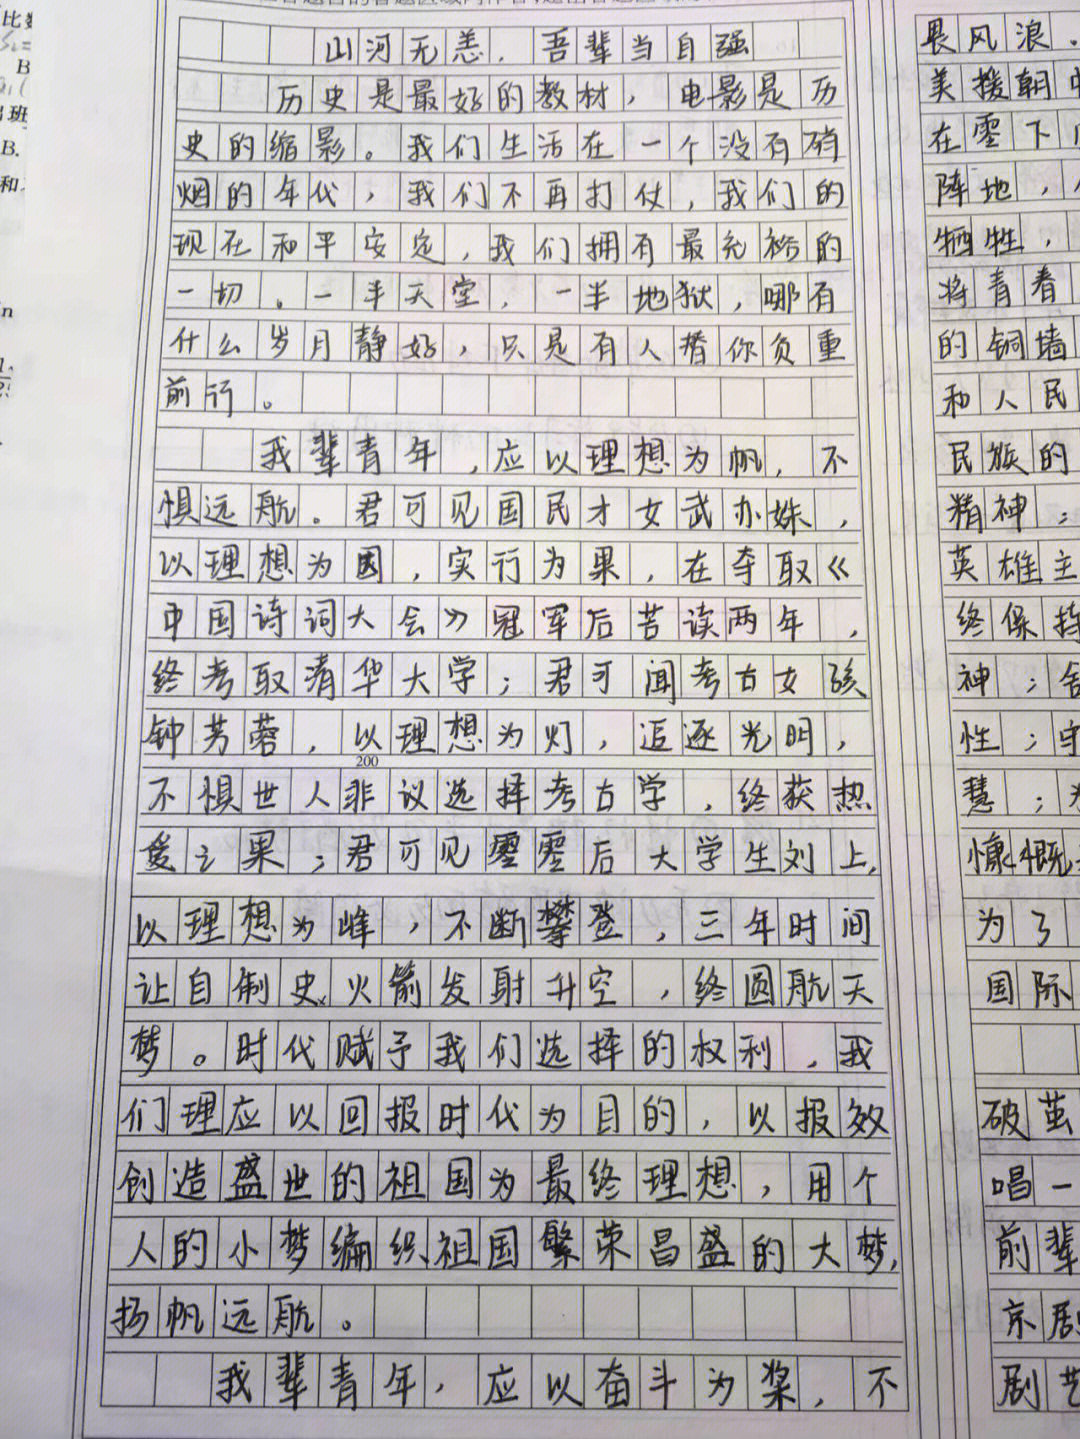 山河无恙，吾辈当自强
历史是最好的教材，电影是历
史的缩影。我们生活在一个没有硝
烟的年代，我们不再打仗，我们的
现在和平安定，我们拥有最充裕的
一切。一半天堂，一半地狱，哪有
什么岁月静好，只是有人替你负重
前行。
我辈青年，应以理想为帆，不
惧远航。君可见国民才女武亦姝，
以理想为因，实行为果，在夺取《
中国诗词大会》冠军后苦读两年，
终考取清华大学；君可闻考古女孩
钟芳蓉，以理想为灯，追逐光明，
200
不惧世人非议选择考古学，终获热
爱之果；君可见零零后大学生刘上，
以理想为峰，不断攀登，三年时间
让自制火箭发射升空，终圆航天
梦。时代赋予我们选择的权利，我
们理应以回报时代为目的，以报效
创造盛世的祖国为最终理想，用个
人的小梦编织祖国繁荣昌盛的大梦，
扬帆远航。
我辈青年，应以奋斗为桨，不
畏风浪．
美援朝
在零下
阵地，
牺牲，
将青春
的铜墙
和人民
民族的
精神；
英雄主
终保持
神；舍
性；守
慧；为
慷慨
为了
国际
破茧
唱一
前辈
京剧
剧艺